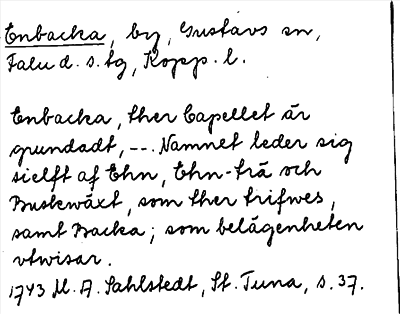 Enbacka, by, Gustavs sn,
Falu d. s. tg, Kopp. l.
Enbacka, ther Capellet är
grundadt, --. Namnet leder sig
sielft af Ehn, Ehn-trä och
Buskwäxt, som ther trifwes,
samt Backa; som belägenheten
vtwisar.
1743 M. A. Sahlstedt, St. Tuna, s. 37.